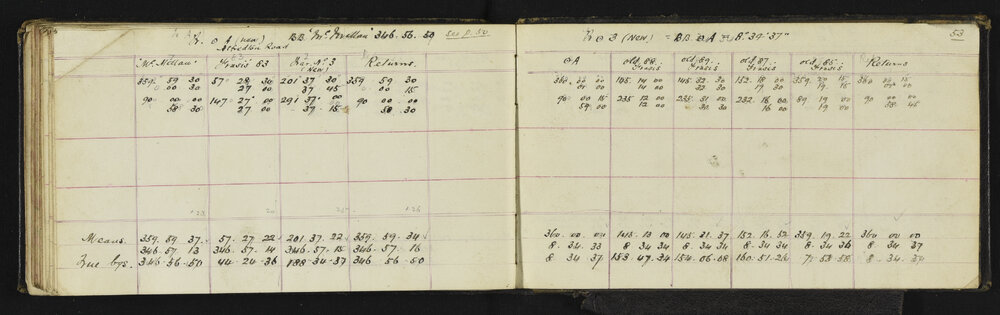 R. O A (New)
Alfredton Road
BB "McMillan" 346. 56. 50
See p. 50
"McMillan" Trasis 83 New Returns.
359 59 30 57 28 30 201 37 30 359 59 30
00 30 27 00 37 45 00 15
90 00 00 147 27 00 291 37 00 90 00 00
58 30 27 00 37 15 58 30
Means. 359. 59. 37. 57. 27. 22 201. 37. 22 359. 59. 34
346. 57. 13 346. 57. 14 346. 57. 15 346. 57. 16
True bgs. 346. 56. 50 44. 24. 36 188. 34. 37 346. 56. 50
R O 3 (New) = BB O A = 8° 34' 37"
53
O A old 88. Trasis old 89. Trasis old 87. Trasis old 86. Trasis Returns
360 00 00 145 14 00 145 32 30 152 18 00 359 20 15 360 00 00
90 00 15 235 12 00 235 31 00 232 16 00 89 19 00 90 00 00
59 00 12 00 30 30 16 00 19 00 58 45
360. 00. 00 145. 13. 00 145. 31. 37 152. 16. 52 359. 19. 22 360 00 00
8. 34. 33 8. 34 34 8. 34 34 8. 34. 34 8. 34 36 8. 34. 37
8. 34. 37 153. 47. 34 154. 06. 08 160. 51. 26 7. 53. 58 8. 34. 30